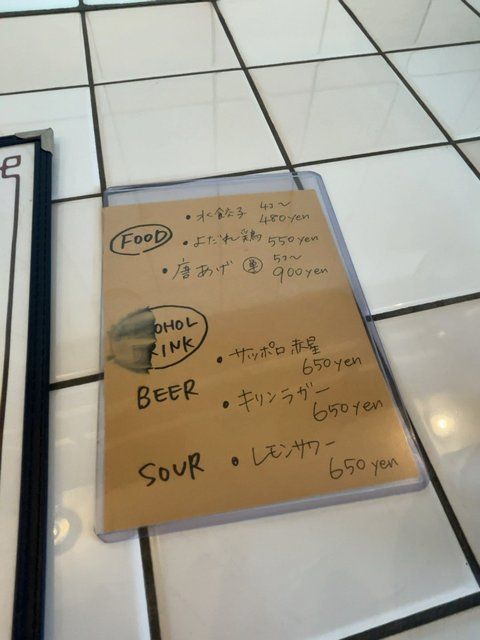 FOOD
・水餃子 4コ〜 480yen
・よだれ鶏 550yen
・唐あげ 単 5コ〜 900yen
OHOL
RINK
BEER
・サッポロ赤星 650yen
・キリンラガー 650yen
SOUR
・レモンサワー 650yen